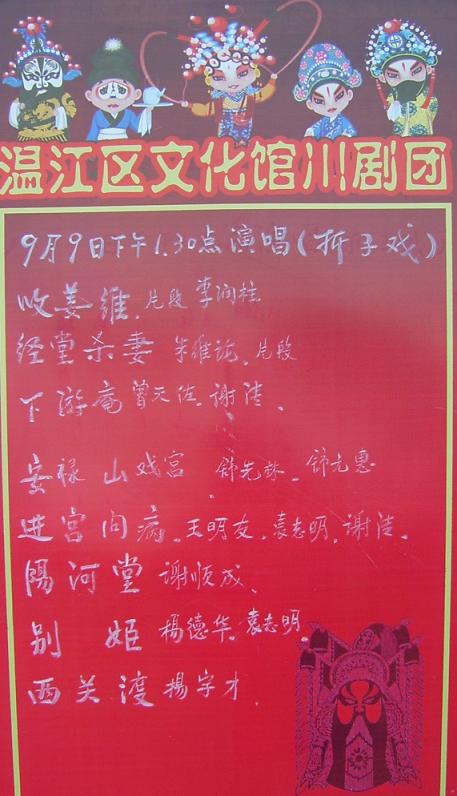 温江区文化馆川剧团
9月9日下午1.30点演唱(折子戏)
收姜维.片段 李润柱
经堂杀妻 朱维 片段
下游庵 曾天佐.谢洁、
安禄山戏宫 舒先 . 舒光惠
进宫问病.王明友.袁志明.谢洁.
陽河堂 谢顺成、
别姬 楊德华.袁志明.
西关渡 楊字才.